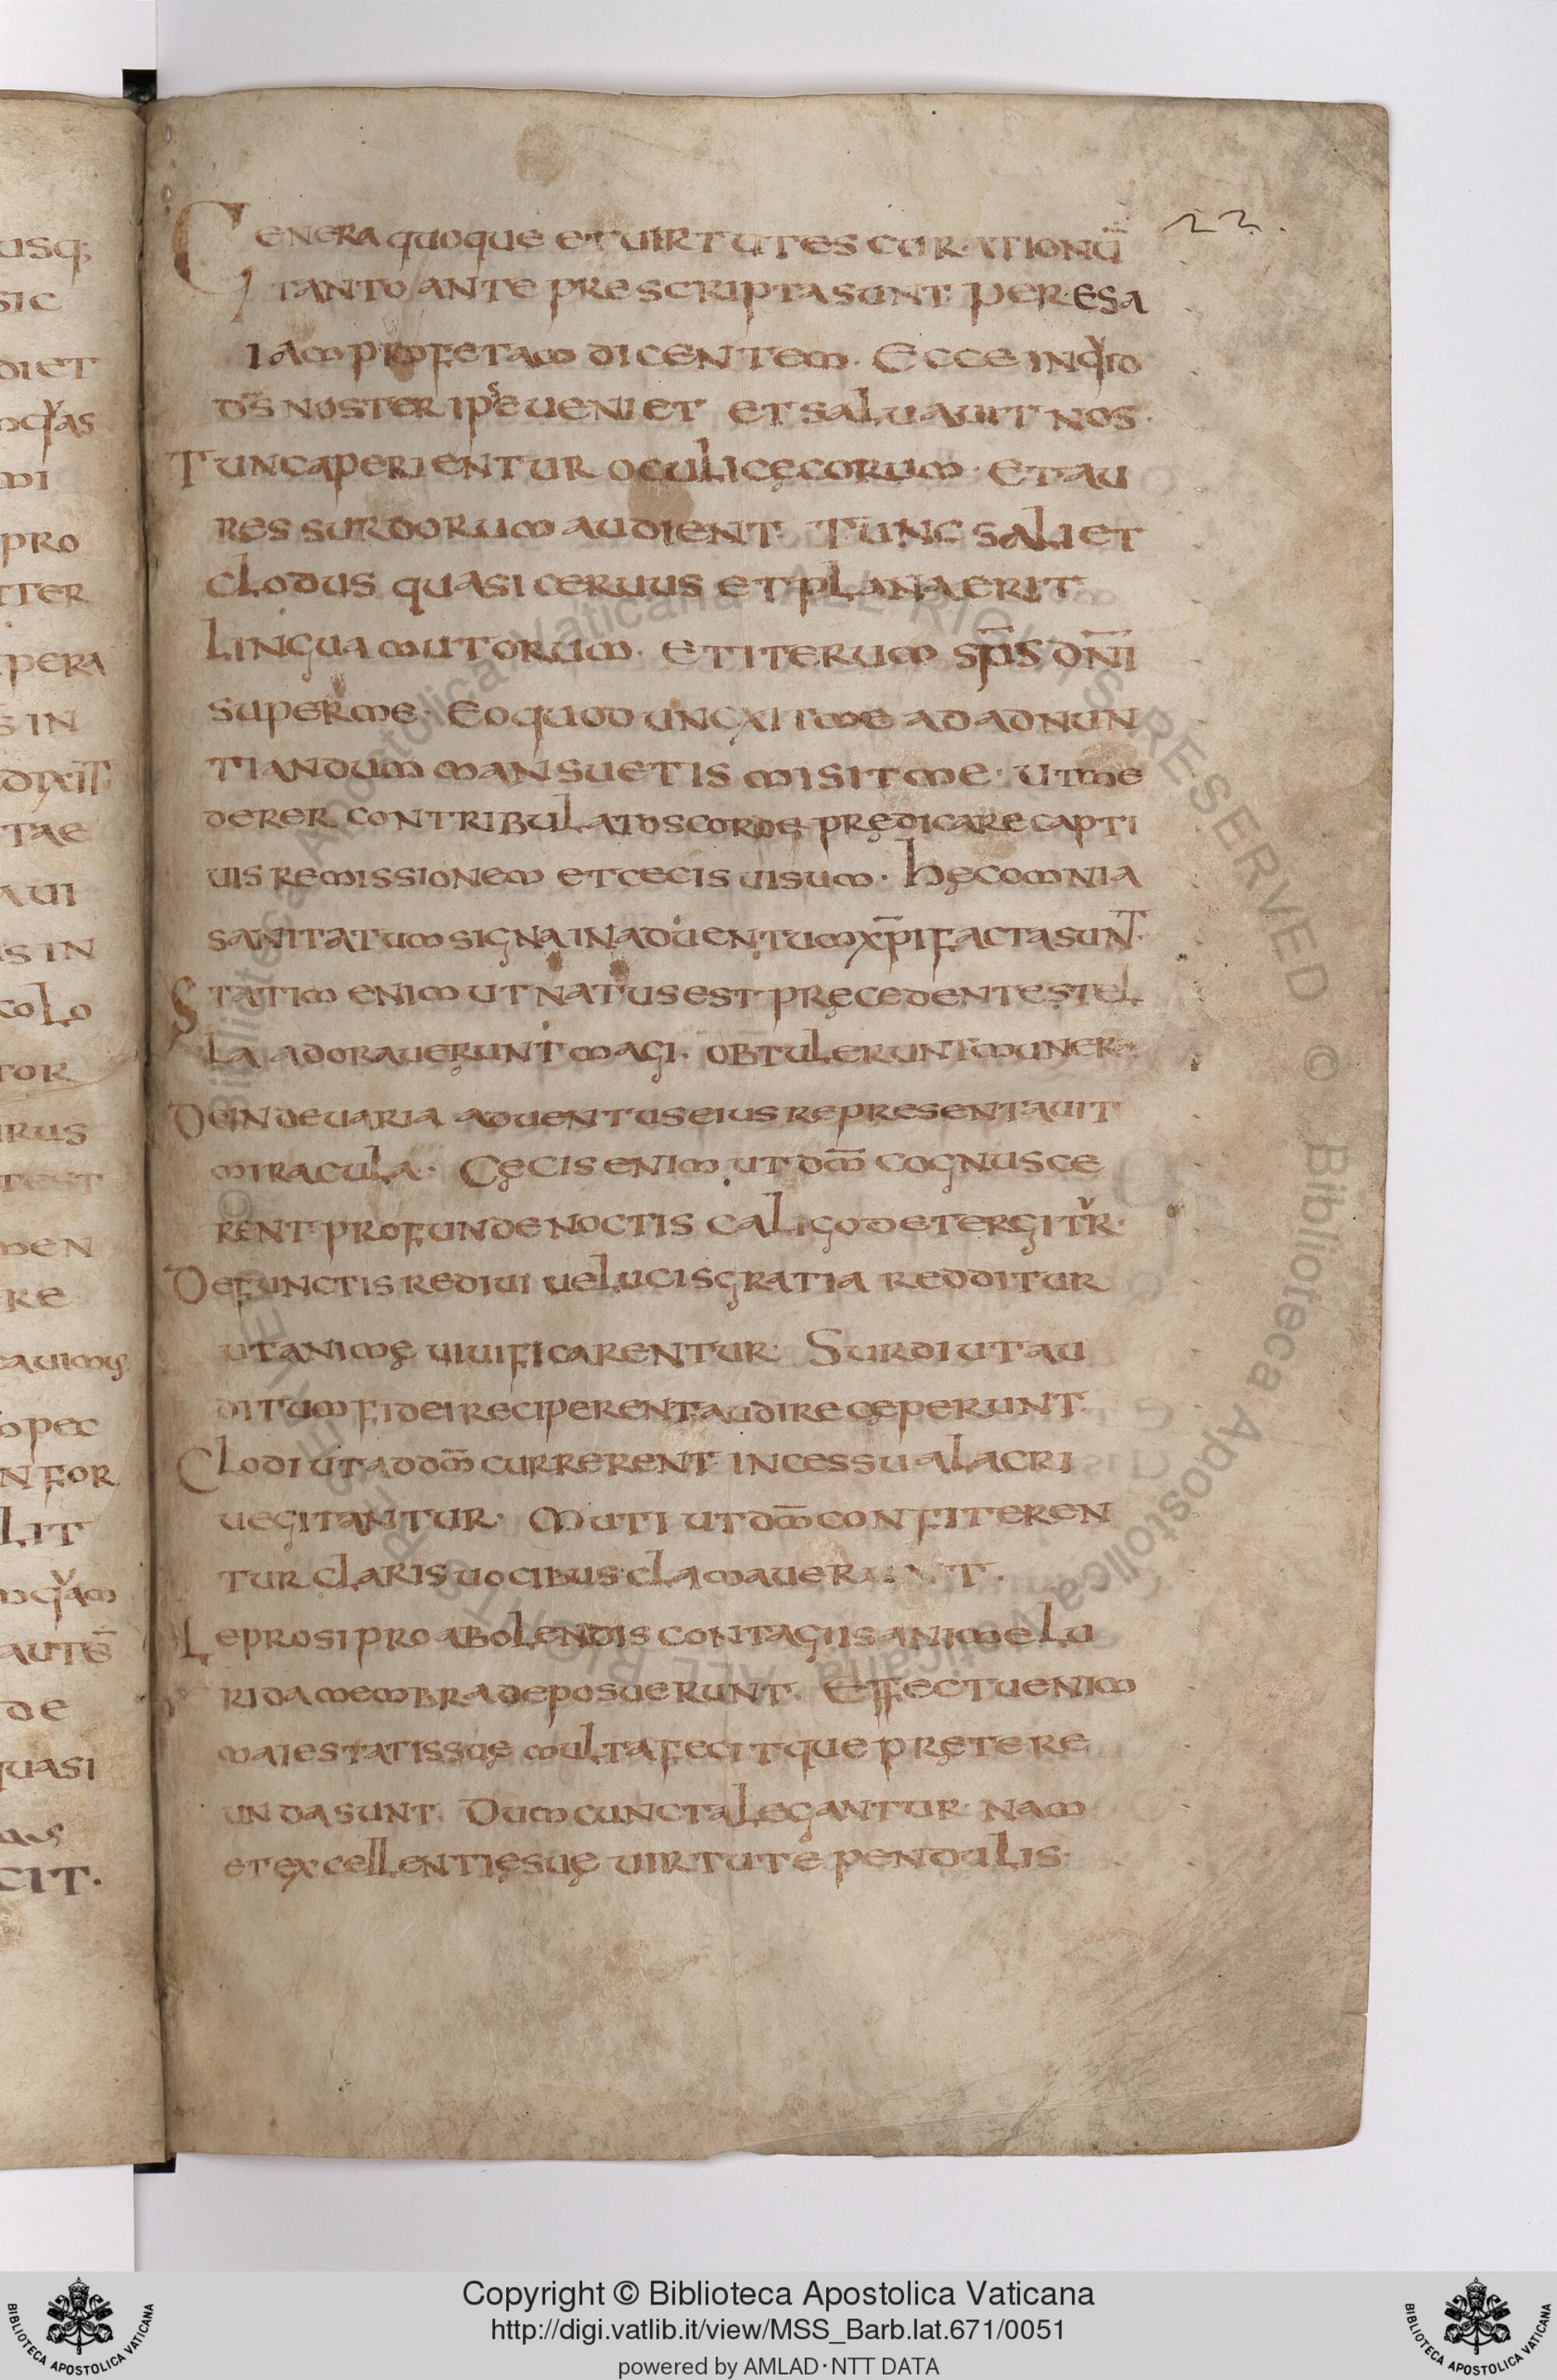 usq;
sic
diet
mqͮas
mi
pro
tter
pera
s in
dixit
tae
aui
is in
colo
tor
irus
test
men
re
eauimus
opec
nfor
lit
mqͮam
autē
de
quasi
cit.
23.
Genera quoque et uirtutes curationū
tanto ante prescripta sunt. per esa
iam profetam dicentem. Ecce inqͮid
d̄s noster ipse ueniet et saluauit nos.
Tunc aperientur oculi cęcorum. et au
res surdorum audient. Tunc saliet
clodus quasi ceruus et plana erit
lingua mutorum. et iterum sp̄s dn̄i
super me. Eo quod uncxit me ad adnun
tiandum mansuetis misit me. ut me
derer contribulatos corde prędicare capti
uis remissionem et cecis uisum. hęc omnia
sanitatum signa in aduentum xp̄i facta sunt.
Statim enim ut natus est pręcedente stel
la adorauerunt magi. obtulerunt munera
Deinde uaria aduentus eius representauit
miracula. Cęcis enim ut dm̄ cognusce
rent profunde noctis caligo detergitͮr.
Defunctis rediui ue lucis gratia redditur
ut animę uiuificarentur. Surdi ut au
ditum fidei reciperent audire cęperunt.
Clodi ut ad dm̄ currerent incessu alacri
uegitantur. Muti ut dm̄ confiteren
tur claris uocibus clamauerunt.
Leprosi pro abolendis contagiis anime lu
rida membra deposuerunt. Effectu enim
maiestatis suę multa fecit que prętere
unda sunt. Dum cuncta legantur. nam
et excellentię suę uirtute pendulis.
© Biblioteca Apostolica Vaticana ALL RIGHTS RESERVED © Biblioteca Apostolica Vaticana ALL RIGHTS RESERVED
Copyright © Biblioteca Apostolica Vaticana
http://digi.vatlib.it/view/MSS_Barb.lat.671/0051
powered by AMLAD·NTT DATA
BIBLIOTECA APOSTOLICA VATICANA
BIBLIOTECA APOSTOLICA VATICANA